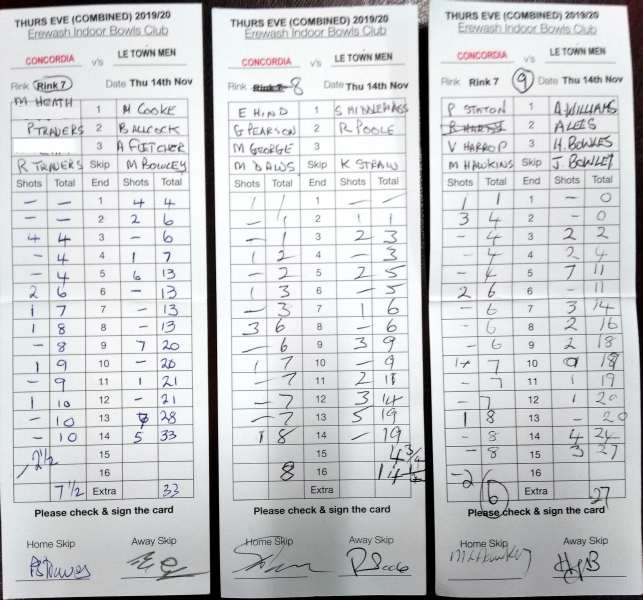 THURS EVE (COMBINED) 2019/20
Erewash Indoor Bowls Club
CONCORDIA v's LE TOWN MEN
Rink Rink 7 Date Thu 14th Nov
M HEATH 1 M COOKE
P TRAVERS 2 B ALLCOCK
3 A FLETCHER
R TRAVERS Skip M BOWLEY
Shots Total End Shots Total
- - 1 4 4
- - 2 2 6
4 4 3 - 6
- 4 4 1 7
- 4 5 6 13
2 6 6 - 13
1 7 7 - 13
1 8 8 - 13
- 8 9 7 20
1 9 10 - 20
- 9 11 1 21
1 10 12 - 21
- 10 13 7 28
- 10 14 5 33
2½ 15
16
7½ Extra 33
Please check & sign the card
Home Skip Away Skip
THURS EVE (COMBINED) 2019/20
Erewash Indoor Bowls Club
CONCORDIA v's LE TOWN MEN
Rink 8 Date Thu 14th Nov
E HIND 1 S MIDDLEMASS
G PEARSON 2 R POOLE
M GEORGE 3
M DAWS Skip K STRAW
Shots Total End Shots Total
1 1 1 - -
- 1 2 1 1
- 1 3 2 3
1 2 4 - 3
- 2 5 2 5
1 3 6 - 5
- 3 7 1 6
3 6 8 - 6
- 6 9 3 9
1 7 10 - 9
- 7 11 2 11
- 7 12 3 14
- 7 13 5 19
1 8 14 - 19
15 4¾
8 16 14¼
Extra
Please check & sign the card
Home Skip Away Skip
THURS EVE (COMBINED) 2019/20
Erewash Indoor Bowls Club
CONCORDIA v's LE TOWN MEN
Rink Rink 7 9 Date Thu 14th Nov
P STATON 1 A WILLIAMS
2 A LEES
V HARROP 3 H. BOWLES
M HAWKINS Skip J. BOWLEY
Shots Total End Shots Total
1 1 1 - 0
3 4 2 - 0
- 4 3 2 2
- 4 4 2 4
- 4 5 7 11
2 6 6 - 11
- 6 7 3 14
- 6 8 2 16
- 6 9 2 18
1 7 10 0 18
- 7 11 1 19
- 7 12 1 20
1 8 13 - 20
- 8 14 4 24
- 8 15 3 27
-2 16
6 Extra 27
Please check & sign the card
Home Skip Away Skip